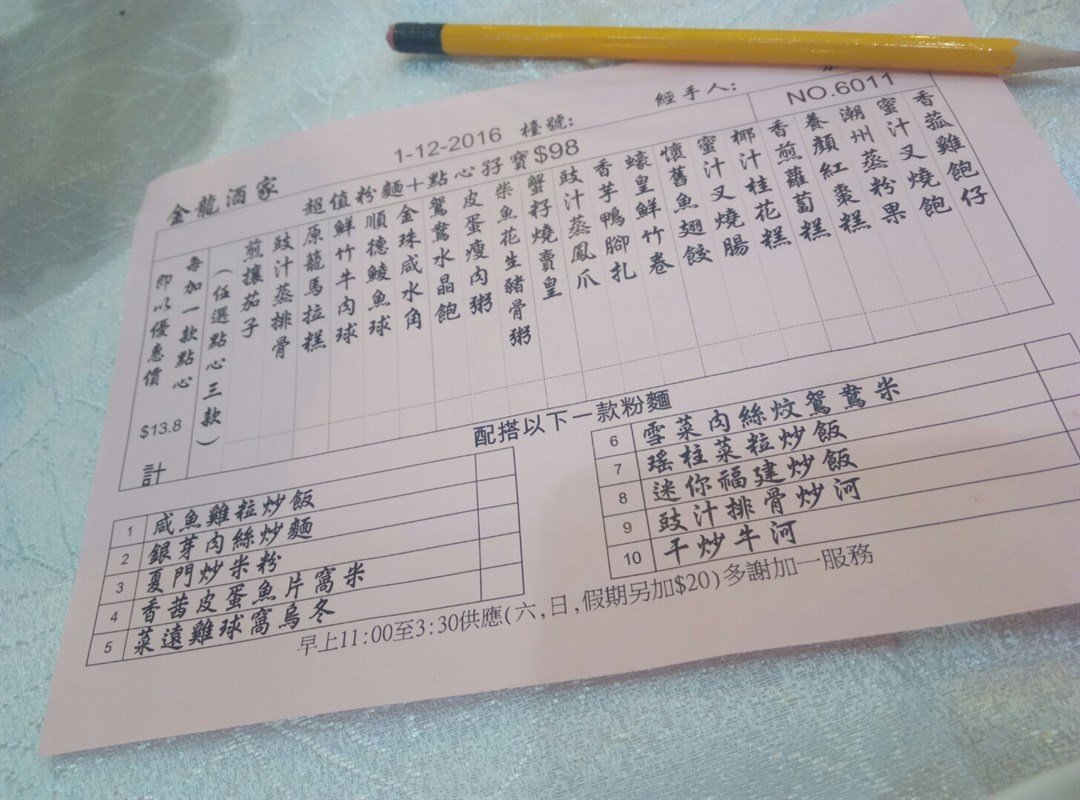 金龍酒家
1-12-2016 檯號:
經手人:
NO.6011
超值粉麵十點心孖寶$98
香菰雞飽仔
蜜汁叉燒飽
潮州蒸粉果
養顏紅棗糕
香煎蘿蔔糕
椰汁桂花糕
蜜汁叉燒腸
懷舊魚翅餃
蠔皇鮮竹卷
香芋鴨腳扎
豉汁蒸鳳爪
蟹籽燒賣皇
柴魚花生豬骨粥
皮蛋瘦肉粥
鴛鴦水晶飽
金珠咸水角
順德鯪魚球
鮮竹牛肉球
原龍馬拉糕
豉汁蒸排骨
煎攘茄子
(任選點心三款)
每加一款點心
即以優惠價 $13.8 計
配搭以下一款粉麵
1 咸魚雞粒炒飯
2 銀芽肉絲炒麵
3 夏門炒米粉
4 香茜皮蛋魚片窩米
5 菜遠雞球窩烏冬
6 雪菜肉絲炆鴛鴦米
7 瑤柱菜粒炒飯
8 迷你福建炒飯
9 豉汁排骨炒河
10 干炒牛河
早上11:00至3:30供應(六,日,假期另加$20)多謝加一服務